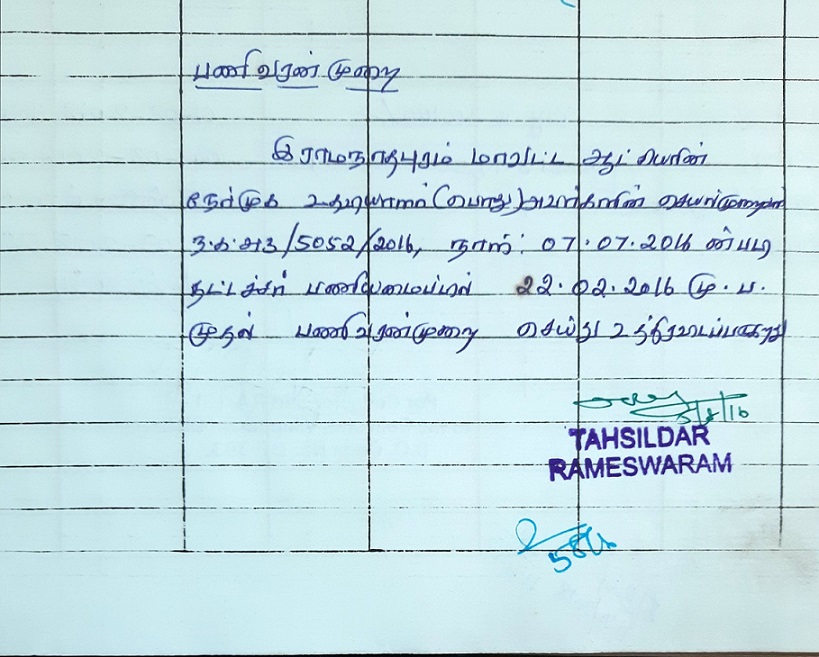 பணிவரன்முறை
இராமநாதபுரம் மாவட்ட ஆட்சியரின்
நேர்முக உதவியாளர் (பொது) அவர்களின் செயல்முறைகள்
ந.க.அ3/5052/2016, நாள்: 07.07.2016 ன்படி
தட்டச்சர் பணியமைப்பில் 22.02.2016 மு.ப.
முதல் பணிவரன்முறை செய்து உத்திரவிடப்படுகிறது
5/8/16
TAHSILDAR
RAMESWARAM